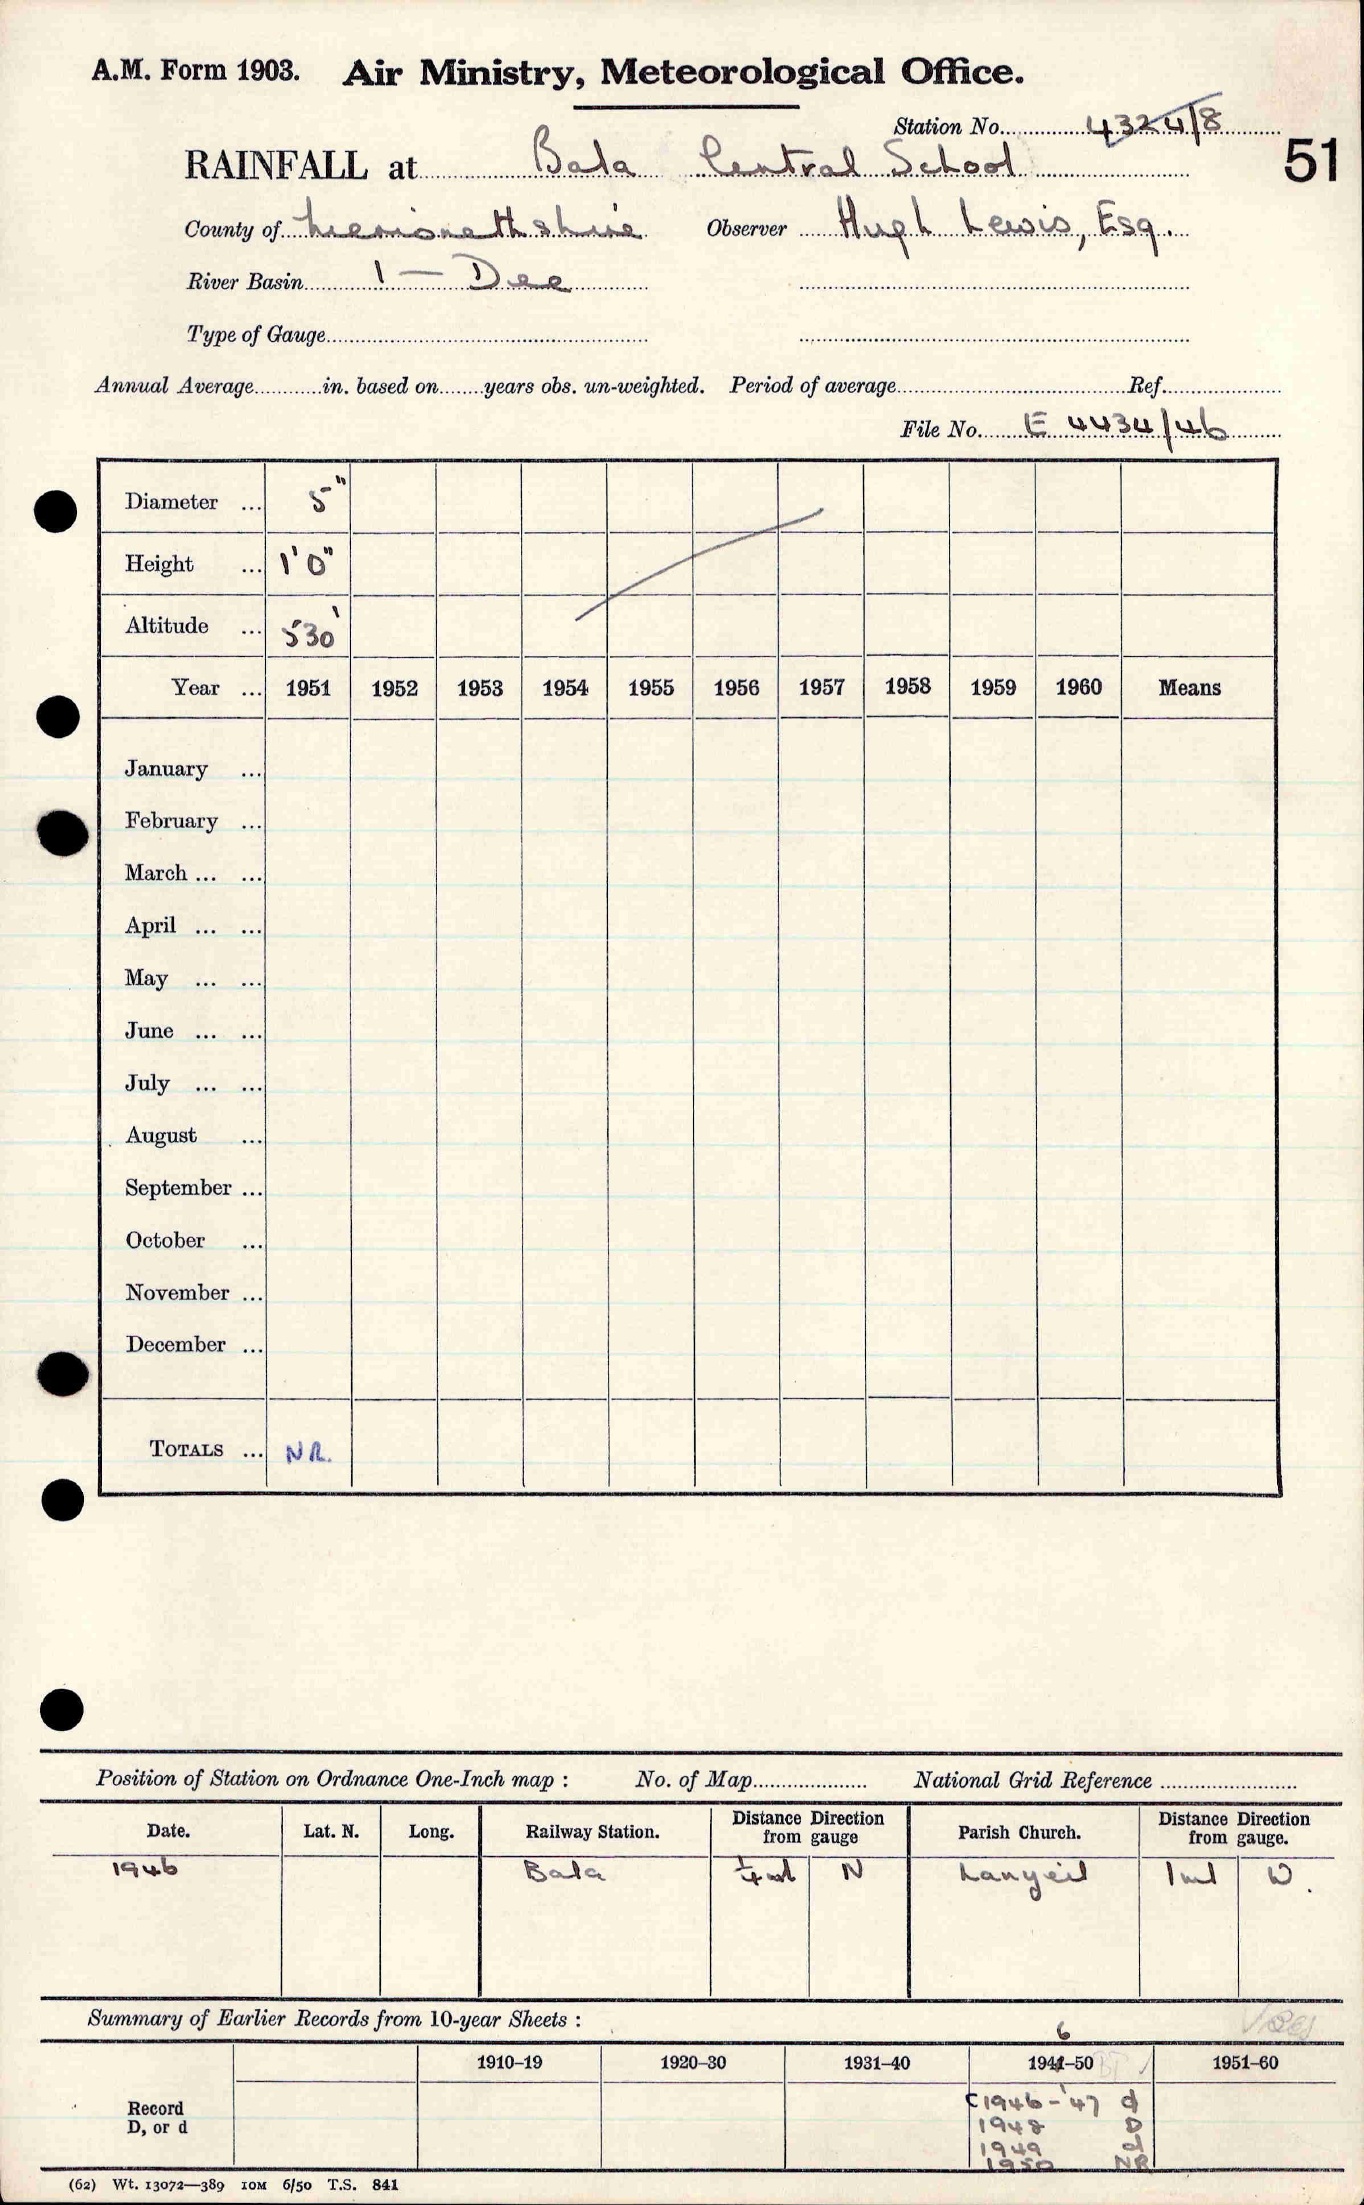 A.M. Form 1903. Air Ministry, Meteorological Office.
Station No. 4324/8
RAINFALL at Bala Central School
51
County of Merionethshire Observer Hugh Lewis, Esq.
River Basin 1 — Dee
Type of Gauge
Annual Average in. based on years obs. un-weighted. Period of average Ref.
File No. E 4434/46
Diameter ... 5"
Height ... 1'0"
Altitude ... 530'
Year ... 1951 1952 1953 1954 1955 1956 1957 1958 1959 1960 Means
January ...
February ...
March ... ...
April ... ...
May ... ...
June ... ...
July ... ...
August ...
September ...
October ...
November ...
December ...
TOTALS ... NR.
Position of Station on Ordnance One-Inch map : No. of Map National Grid Reference
Date. Lat. N. Long. Railway Station. Distance Direction from gauge Parish Church. Distance Direction from gauge.
1946 Bala ¼ ml N Lanycil 1 ml W.
Summary of Earlier Records from 10-year Sheets :
6
1910–19 1920–30 1931–40 1941–50 1951–60
Record
D, or d
1946–'47 d
1948 D
1949 d
1950 NR
(62) Wt. 13072—389 10M 6/50 T.S. 841